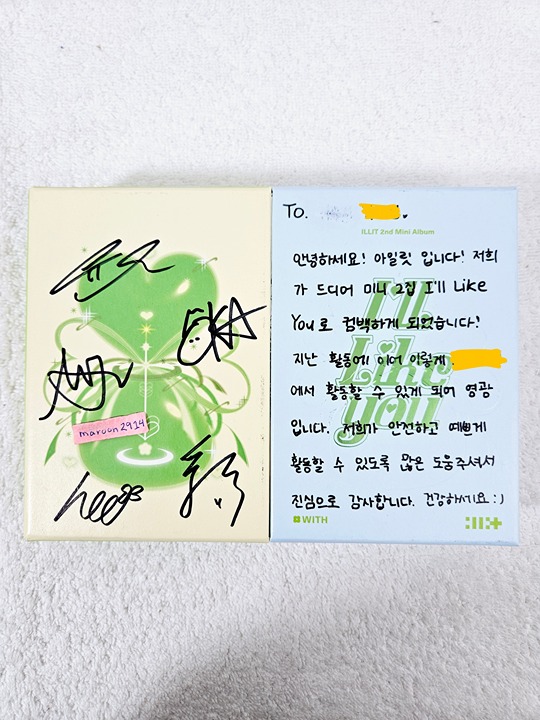 maroon2914
To.
ILLIT 2nd Mini Album
I'll
Like
You
안녕하세요! 아일릿 입니다! 저희
가 드디어 미니 2집 I'll Like
You로 컴백하게 되었습니다!
지난 활동에 이어 이렇게
에서 활동할 수 있게 되어 영광
입니다. 저희가 안전하고 예쁘게
활동할 수 있도록 많은 도움주셔서
진심으로 감사합니다. 건강하세요 :)
WITH